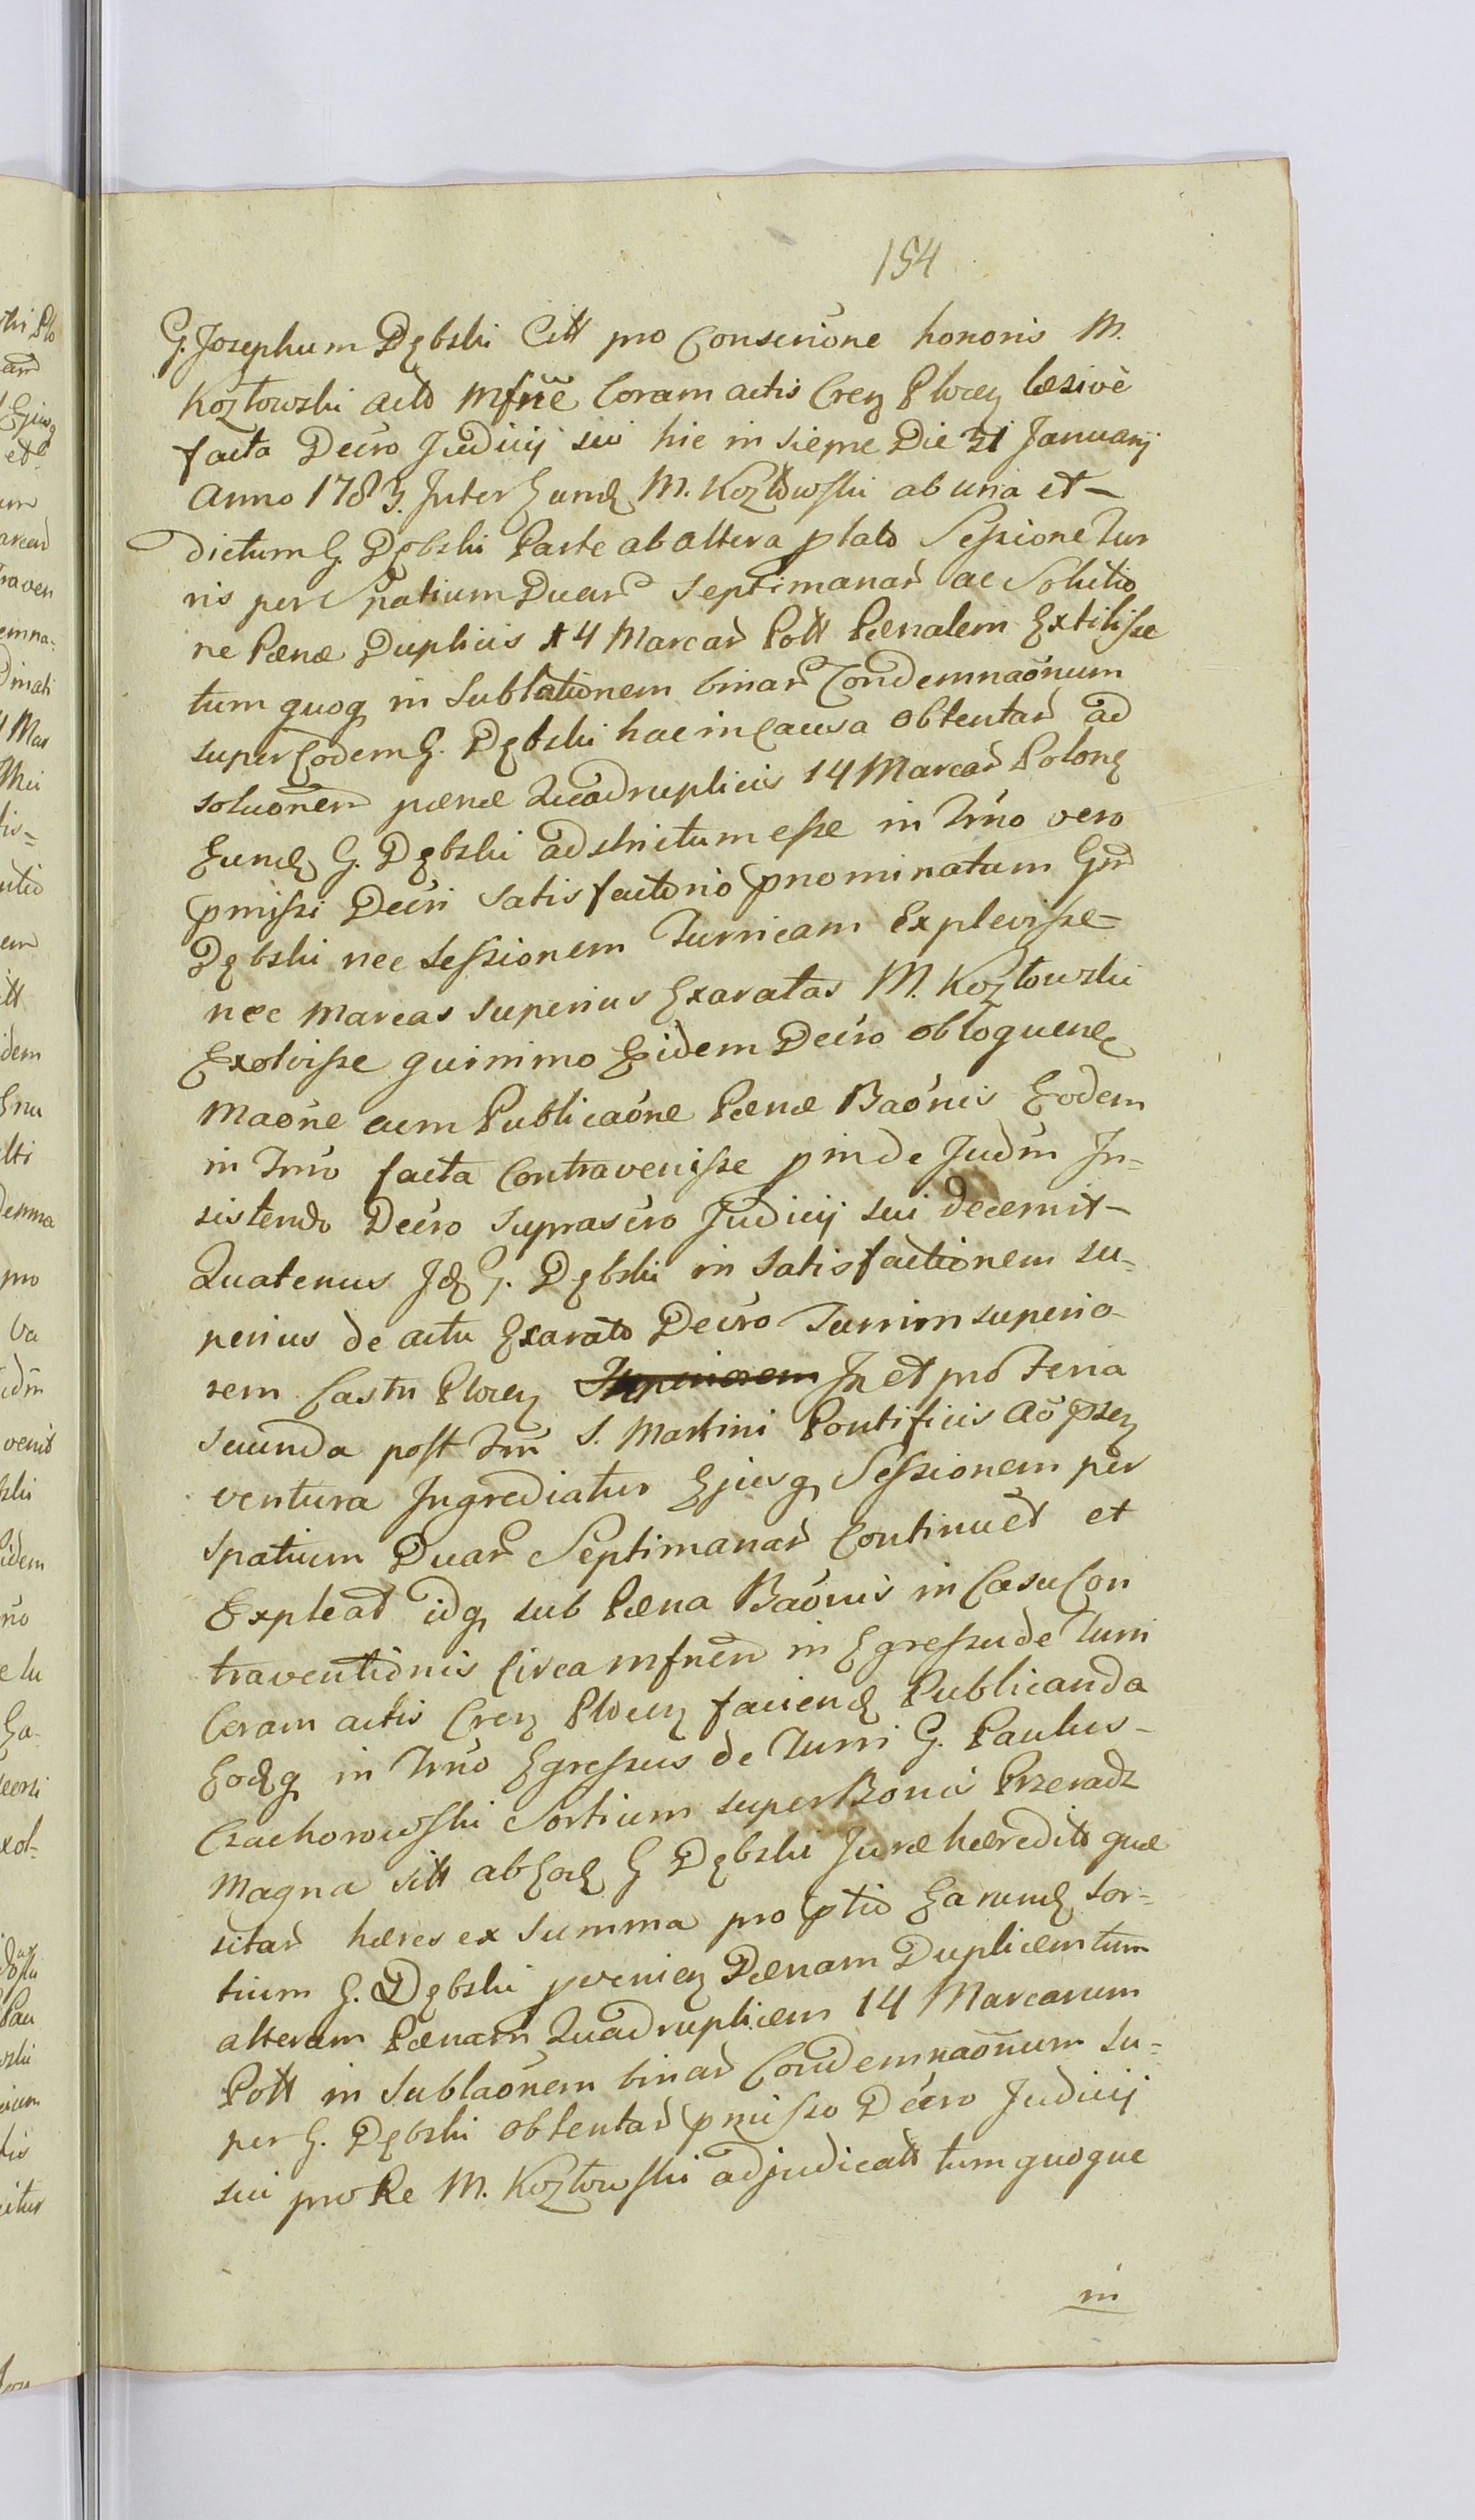 154
G. Josephum Dębski Citt pro Conserióne honoris M.
Kozłowski acto Mfñe Coram actis Cren Plocen læsivè
facta Decro Judicij sui hic in Sierpc Die 31 Januarij
Anno 1783. Inter Eund M. Kozłowski ab una et –
dictum G. Dębski Parte ab altera plato Seſsione Tur
ris per Spatium Duar Septimanar ac Solutio
ne Pænæ Duplicis 14 Marcar Poll Pænalem Extitiſse
tum quoq in Sublationem binar Condemnaónum
super Eodem G. Dębski hac in Causa obtentar ad
soluónem pænæ Quadruplicis 14 Marcar Polon
Eund G. Dębski adstrictum eſse in Trno vero
pmiſsi Decri satisfactorio pnominatum Gnd
Dębski nec Seſsionem Turricam Expleviſse –
nec Marcas superius Exaratas M. Kozłowski
Exolviſse quinimo Eidem Decro obloquend
Maóne cum Publicaóne Pænæ Baónis Eodem
in Trno facta Contraveniſse pinde Judm In=
sistendo Decro suprascro Judicij sui decernit –
Quatenus Id G. Dębski in satisfactionem su=
perius de actu Exarato Decro Turrim superio
rem Castri Plocen In et pro Feria
secunda post Fm̃ S. Martini Pontificis Aō psen
ventura Ingrediatur Ejusq Seſsionem per
spatium Duar Septimanar Continuet et
Expleat idq sub Pæna Baónis in Casu Con
traventionis Circa mfnem in Egreſsu de Turri
Coram actis Cren Plocen faciend Publicanda
Eodq in Trno Egreſsus de Turri G. Paulus –
Czachorowski Sortium super Bonis Przeradz
Magna sitt ab Eod G Dębski Jure hæredito quæ
sitar hæres ex Summa pro ptio Earund sor=
tium G. Dębski pvenien Pænam Duplicem tum
alteram Pænam Quadruplicem 14 Marcarum
Poll in Sublaónem binar Condemnaónum su=
per G. Dębski obtentar pmiſso Decro Judicij
sui pro Re M. Kozłowski adjudicatt tum quoque
in